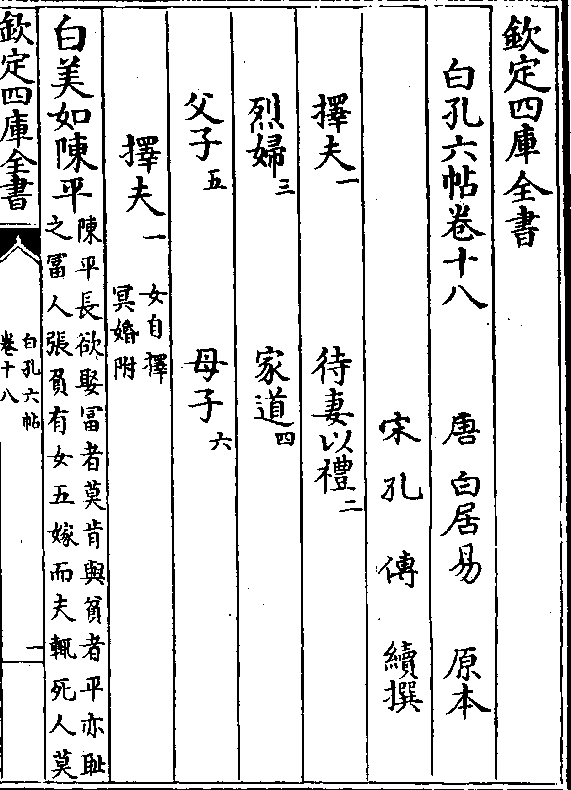 欽定四庫全書
白孔六帖卷十八
唐 白居易 原本
宋 孔 傳 續撰
擇夫一 待妻以禮二
烈婦三 家道四
父子五 母子六
擇夫一 女自擇
冥婚附
白美如陳平 陳平長欲娶冨者莫肯與貧者平亦耻
之冨人張負有女五嫁而夫輒死人莫
欽定四庫全書
白孔六帖
卷十八
一